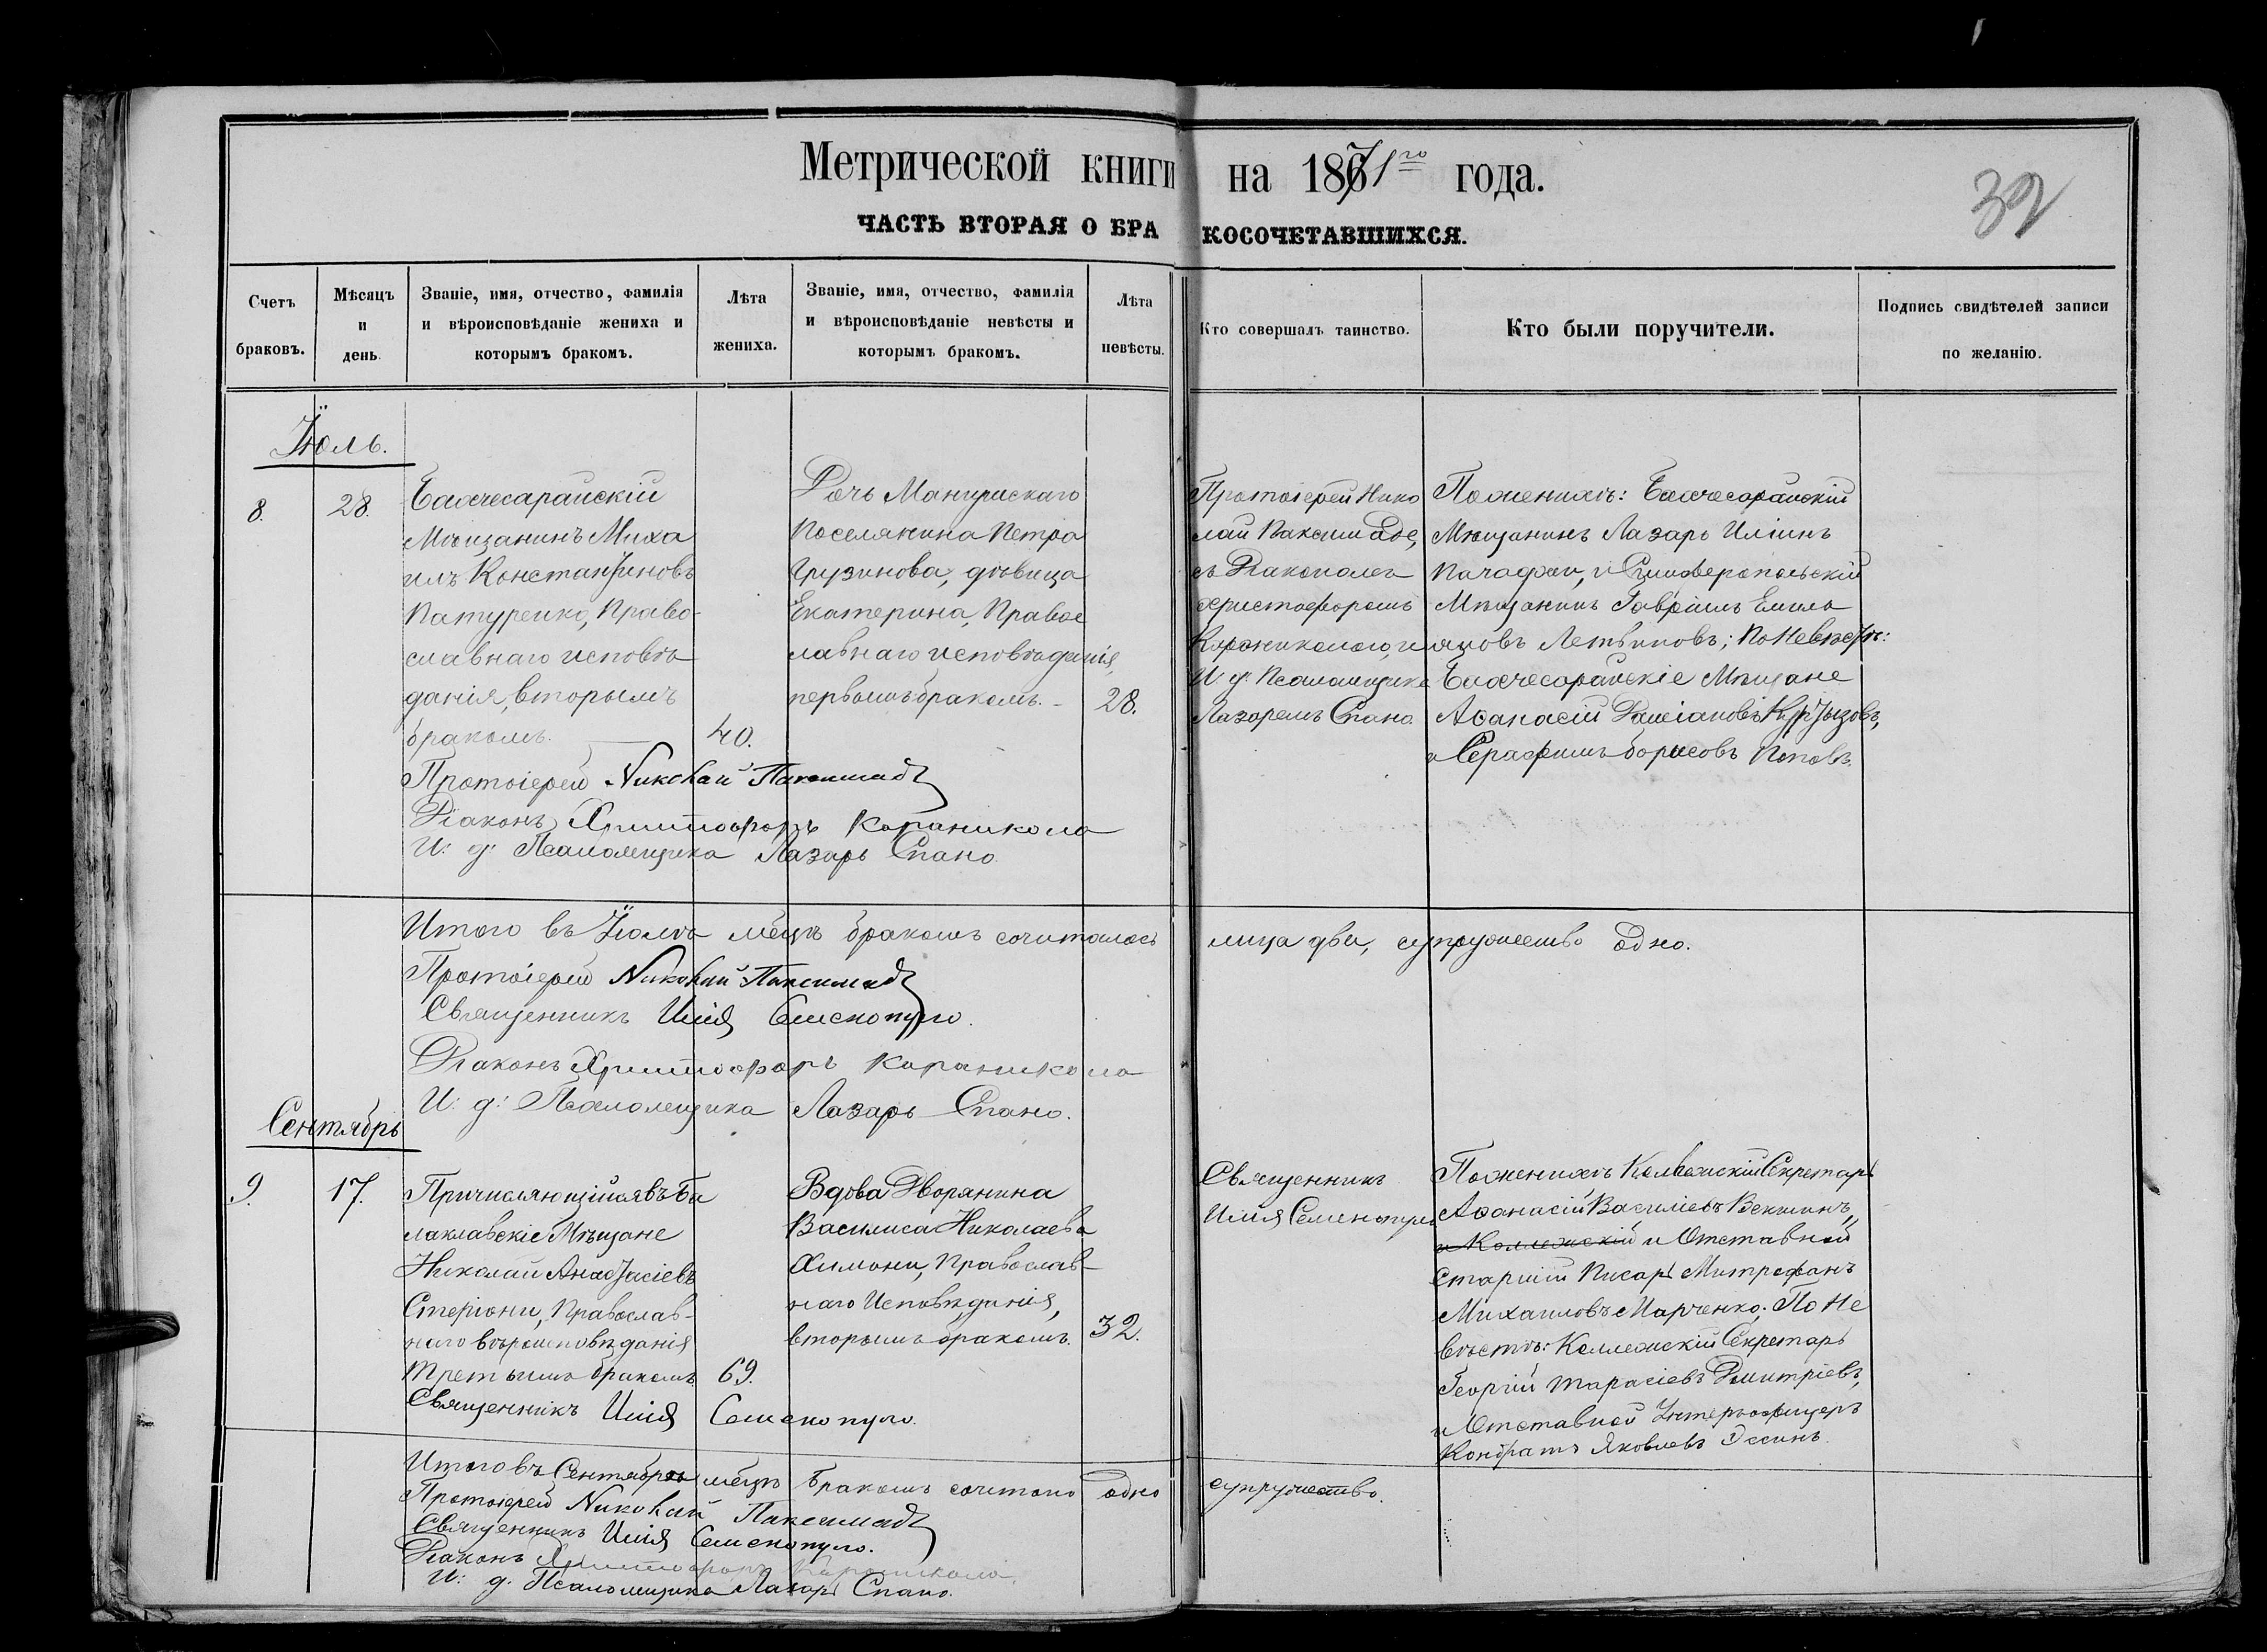 Метрической книги на 1871го года.
32
ЧАСТЬ ВТОРАЯ О БРАКОСОЧЕТАВШИХСЯ.
Счетъ браковъ.
Мѣсяцъ и день.
Званіе, имя, отчество, фамилія
и вѣроисповѣданіе жениха и
которымъ бракомъ.
Лѣта жениха.
Званіе, имя, отчество, фамилія
и вѣроисповѣданіе невѣсты и
которымъ бракомъ.
Лѣта невѣсты.
Кто совершалъ таинство.
Кто были поручители.
Подпись свидѣтелей записи
по желанію.
Іюль.
8.
28.
Бахчесарайскій
Мѣщанинъ Миха
илъ Константиновъ
Патуренко, Право-
славнаго исповѣ
данія, вторымъ
бракомъ.
40.
Дочь Мангушскаго
Поселянина Петра
Грузинова, дѣвица
Екатерина, Правос
лавнаго исповѣданія,
первымъ бракомъ. -
28.
Протоіерей Нико
лай Паксимаде,
съ Діакономъ
Христофоромъ
Караниколою, и
И. д. Псаломщика
Лазаремъ Спано
По женихѣ: Бахчесарайскій
Мѣщанинъ Лазарь Иліинъ
и Симферопольскій
Мѣщанинъ Гавріилъ Емель
яновъ Летвиновъ; По Невѣстѣ:
Бахчесарайскіе Мѣщане
Аѳанасій
и Серафимъ Борисовъ Поповъ.
Протоіерей Николай Паксимадъ
Діаконъ Христофоръ Караникола
И: д: Псаломщика Лазарь Спано
Итого въ Іюлѣ мѣцѣ бракомъ сочиталось лица два, супружество одно.
Протоіерей Николай Паксимадъ
Священникъ Илія Семенопуло.
Діаконъ Христофоръ Караникола
И: д: Псаломщика Лазарь Спано.
Сентябрь
9.
17.
Причисляющійся въ Ба
лаклавскіе Мѣщане
Николай Анастасіевъ
Стеріони, Православ-
наго вѣроисповѣданія
третьимъ бракомъ
69.
Вдова Дворянина
Василиса Николаева
Химони, Православ-
наго Исповѣданія,
вторымъ бракомъ.
32.
Священникъ
Илія Семенопуло
По женихѣ Колежскій Секретарь
Аѳанасій Василіевъ Векшинъ,
и Коллежскій и Отставной
старшій Писарь Митрофанъ
Михаиловъ Марченко. По Не
вѣстѣ: Коллежскій Секретарь
Георгій Тарасіевъ Дмитріевъ,
и Отставной Унтеръофицеръ
Кондратъ Яковлевъ Эссинъ.
Священникъ Илія Семенопуло.
Итого въ Сентябрѣ мѣцѣ бракомъ сочтано одно супружество.
Протоіерей Николай Паксимадъ
Священникъ Илія Семенопуло.
Діаконъ Христофоръ Караникола.
И: д. Псаломщика Лазарь Спано.